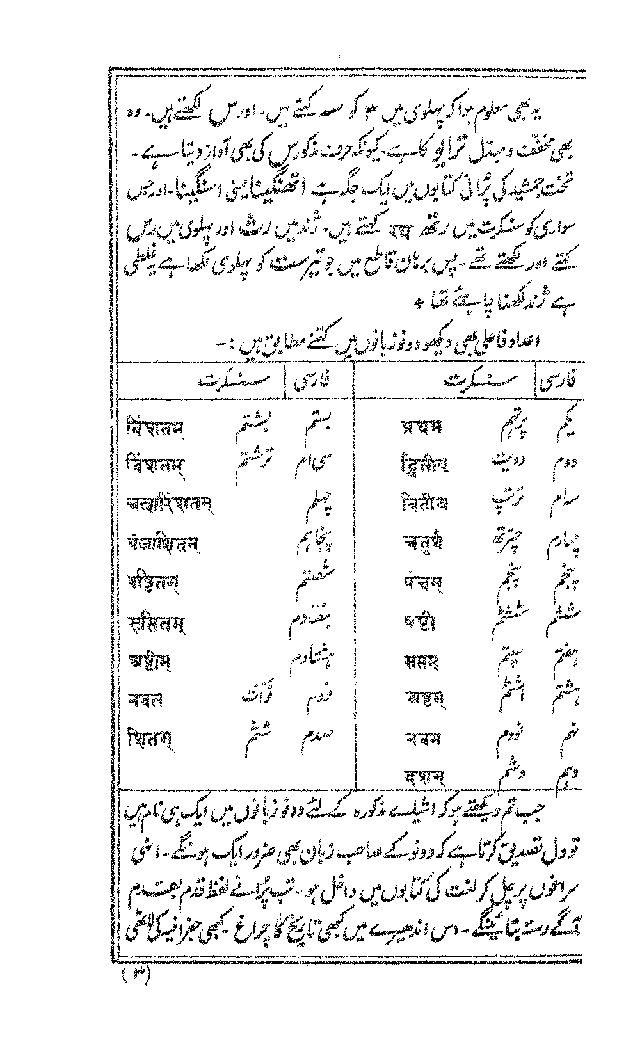 یہ بھی معلوم ہوا کہ پہلوی میں ۳ کو سہ کہتے ہیں۔ اور س لکھتے ہیں۔ وہ
بھی مخفف و مبدل کا ہے۔ کیونکہ حرف مذکور س کی بھی آواز دیتا ہے۔
تخت جمشید کی پرانی کتابوں میں ایک جگہ ہے یعنی اور جس
سواری کو سنسکرت میں رتھ रथ کہتے ہیں۔ ژند میں رث اور پہلوی میں رس
کہتے اور لکھتے تھے۔ پس برہان قاطع میں جو تیرست کو پہلوی لکھا ہے یہ غلطی
ہے ژند لکھنا چاہئے تھا +
اعداد فاعلی بھی دیکھو دونو زبانوں میں کتنے مطابق ہیں :۔
فارسی سنسکرت فارسی سنسکرت
یکم پرتھم प्रथम بستم بشتم विंशतम
دوم دویت द्वितीय سی ام ترشتم त्रिंशतम्
سوم त्रितीय چہلم चत्वारिंशतम
چہارم چترتھ चतुर्थ پنجاہم पंजाशितम
پنجم پنچم पंचम् شصتم षष्ठितम्
ششم ششٹم षष्टी ہفتادم सप्ततिम्
ہفتم سپتم सप्तम ہشتادم अष्टीम्
ہشتم اشٹم अष्टम् نودم नवत
نہم نووم नवम صدم شتم शितम्
دہم دشم दशम्
جب تم دیکھتے ہو کہ اشیائے مذکورہ کے لئے دونو زبانوں میں ایک ہی نام ہیں
تو دل تصدیق کرتا ہے کہ دونو کے صاحب زبان بھی ضرور ایک ہونگے۔ انہی
سراغوں پر چل کر لغت کی کتابوں میں داخل ہو۔ تب پرانے لفظ قدم بقدم
آگے رستہ بتائینگے۔ اس اندھیرے میں کبھی تاریخ کا چراغ۔ کبھی جغرافیہ کی لاٹھی
(۳)